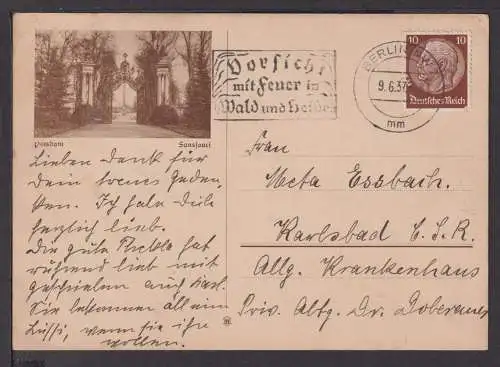 Potsdam Sanssouci
Vorsicht
mit Feuer in
Wald und Heide
BERLIN
9.6.37
mm
10 10
Deutsches Reich
Lieben Dank für
Dein treues Geden-
ken. Ich habe Dich
herzlich lieb.
Die gute hat
rührend lieb mit
geschrieben auch Karl.
Sie bekommen all ein
Küssi, wenn sie ihn
wollen.
Frau
Meta Essbach.
Karlsbad C.S.R.
Allg. Krankenhaus
Priv. Abtg. Dr.